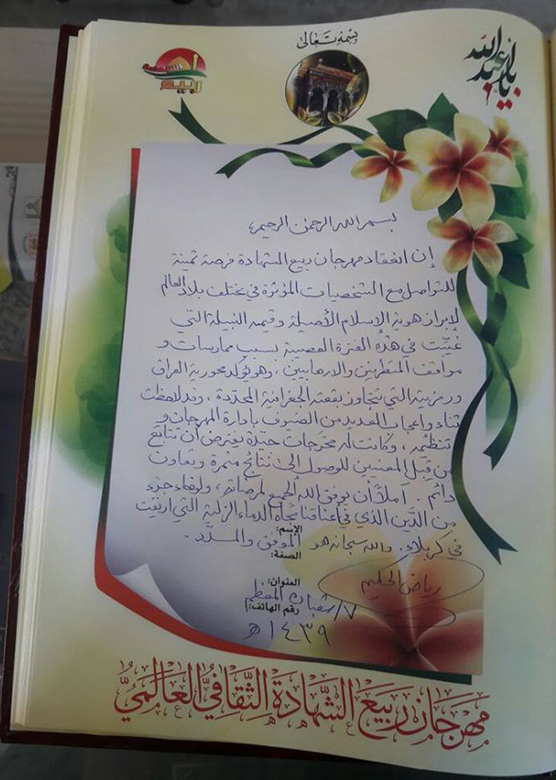 بِسْمِهِ تَعَالَىٰ
يا أبا عبد الله
ربيع الشهادة
بسم الله الرحمن الرحيم
إن انعقاد مهرجان ربيع الشهادة فرصة ثمينة
للتواصل مع الشخصيات المؤثرة في مختلف بلاد العالم
لإبراز هوية الإسلام الأصيلة وقيمه النبيلة التي
غيّبت في هذه الفترة العصيبة بسبب ممارسات و
مواقف المتطرفين والإرهابيين، وهو يؤكد محورية العراق
ورمزيته التي تتجاوز بقعته الجغرافية المحدّدة، وقد لاحظت
ثناء وإعجاب العديد من الضيوف بإدارة المهرجان و
تنظيمه، وكانت له مخرجات جيّدة يفترض أن تتابع
من قِبَل المعنيين للوصول إلى نتائج مثمرة وتعاون
دائم. آملاً أن يوفق الله الجميع لمرضاته، ولإيفاء جزء
من الدَّين الذي في أعناقنا تجاه الدماء الزكية التي أريقت
الإسم:
في كربلاء. والله سبحانه هو الموفق والمسدّد.
الصفة:
رياض الحكيم
العنوان:
٧/ شعبان المعظم
رقم الهاتف:
١٤٣٩ هـ
مهرجان ربيع الشهادة الثقافي العالمي